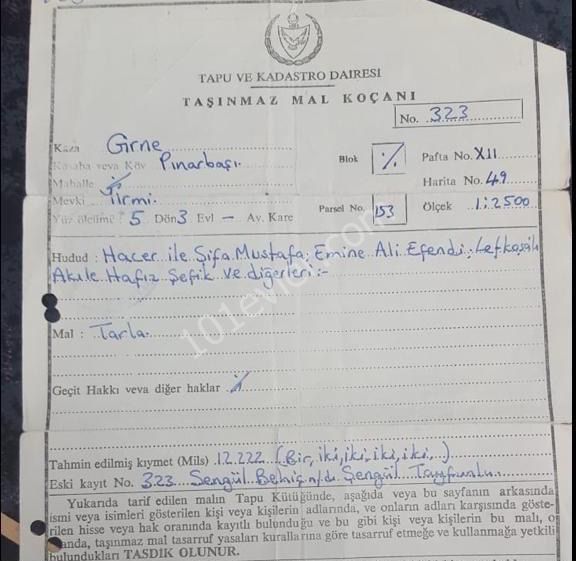 TAPU VE KADASTRO DAİRESİ
TAŞINMAZ MAL KOÇANI
No. 323
Kaza Girne
Kasaba veya Köy Pınarbaşı.
Blok ٪ Pafta No. XII
Mahalle
Harita No. 49
Mevki Tirmi.
Yüz ölçümü 5 Dön 3 Evl — Av. Kare
Parsel No. 153 Ölçek 1:2500
Hudud : Hacer ile Şifa Mustafa; Emine Ali Efendi; Lefkoşalı
Akile Hafız Şefik ve diğerleri:-
Mal : Tarla.
101evler.com
Geçit Hakkı veya diğer haklar ٪
Tahmin edilmiş kıymet (Mils) 12.222 (Bir, iki, iki, iki, iki,)
Eski kayıt No. 323 Şengül Behiç n/d. Şengül Tayfunlu
Yukarıda tarif edilen malın Tapu Kütüğünde, aşağıda veya bu sayfanın arkasında
ismi veya isimleri gösterilen kişi veya kişilerin adlarında, ve onların adları karşısında göste-
rilen hisse veya hak oranında kayıtlı bulunduğu ve bu gibi kişi veya kişilerin bu malı, o
anda, taşınmaz mal tasarruf yasaları kurallarına göre tasarruf etmeğe ve kullanmağa yetkili
bulundukları TASDİK OLUNUR.